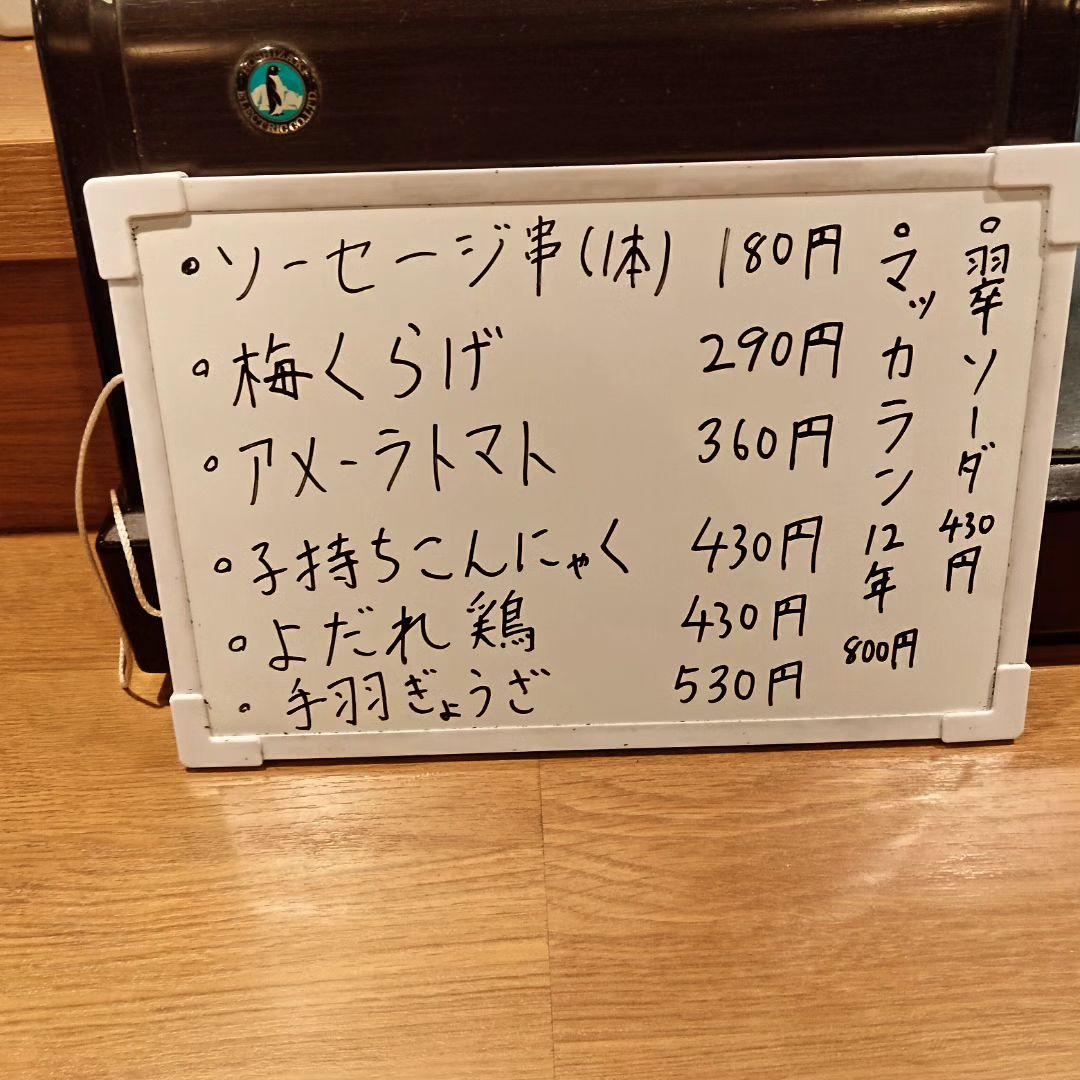 HOSHIZAKI ELECTRIC CO.,LTD.
・ソーセージ串(1本) 180円
・梅くらげ 290円
・アメーラトマト 360円
・子持ちこんにゃく 430円
・よだれ鶏 430円
・手羽ぎょうざ 530円
・翠ソーダ 430円
・マッカラン12年 800円